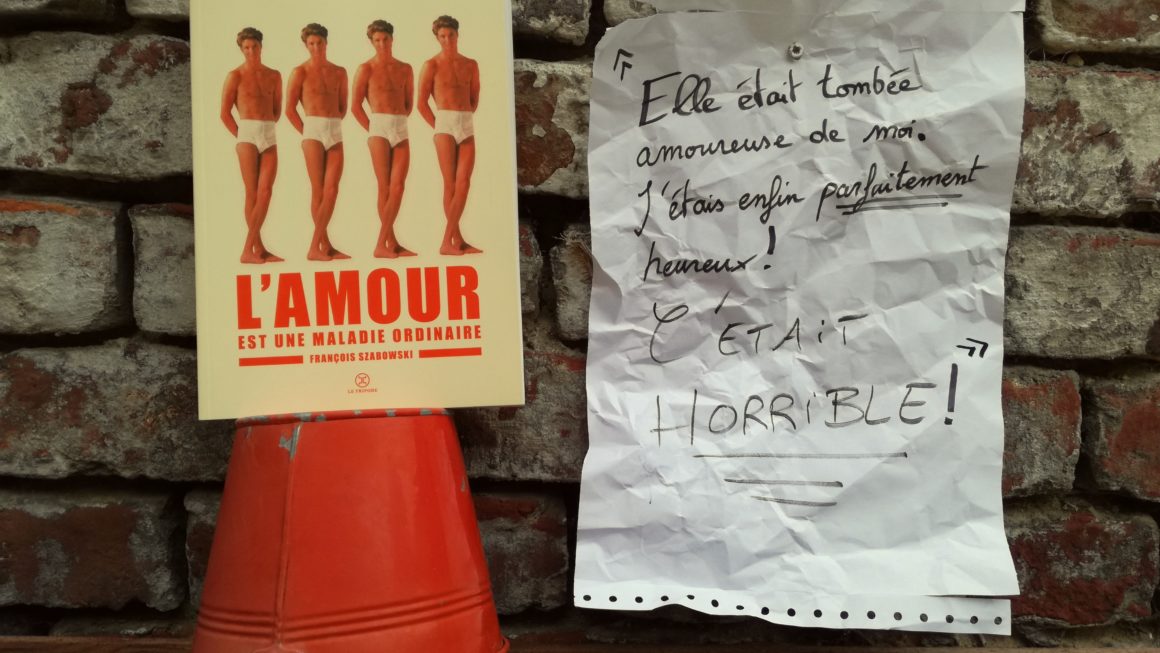 L'AMOUR
EST UNE MALADIE ORDINAIRE
FRANÇOIS SZABOWSKI
LE TRIPODE
« Elle était tombée
amoureuse de moi.
J'étais enfin parfaitement
heureux !
C'ÉTAiT
HORRiBLE ! »